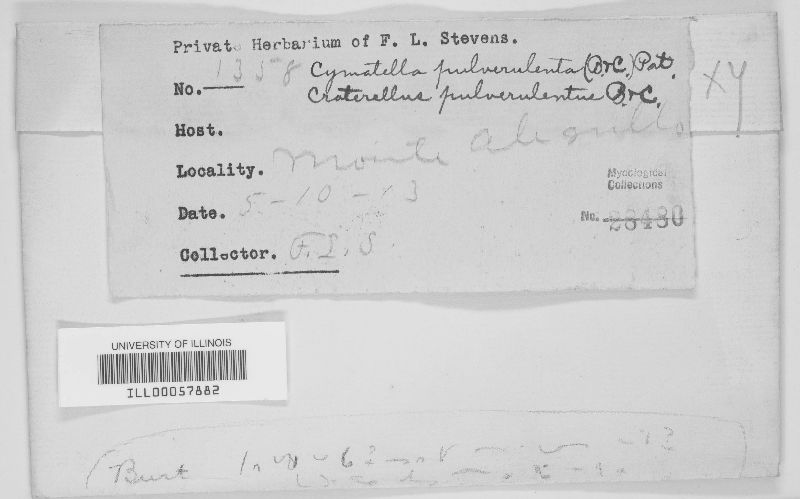 Private Herbarium of F. L. Stevens.
No. 1358 Cymatella pulverulenta (B.&C.) Pat.
Craterellus pulverulentus B.&C.
XY
Host.
Locality. Monte Alegrillo
Mycological
Collections
Date. 5-10-13
No. 28430
Collector. F.L.S.
UNIVERSITY OF ILLINOIS
ILL00057882
Burt